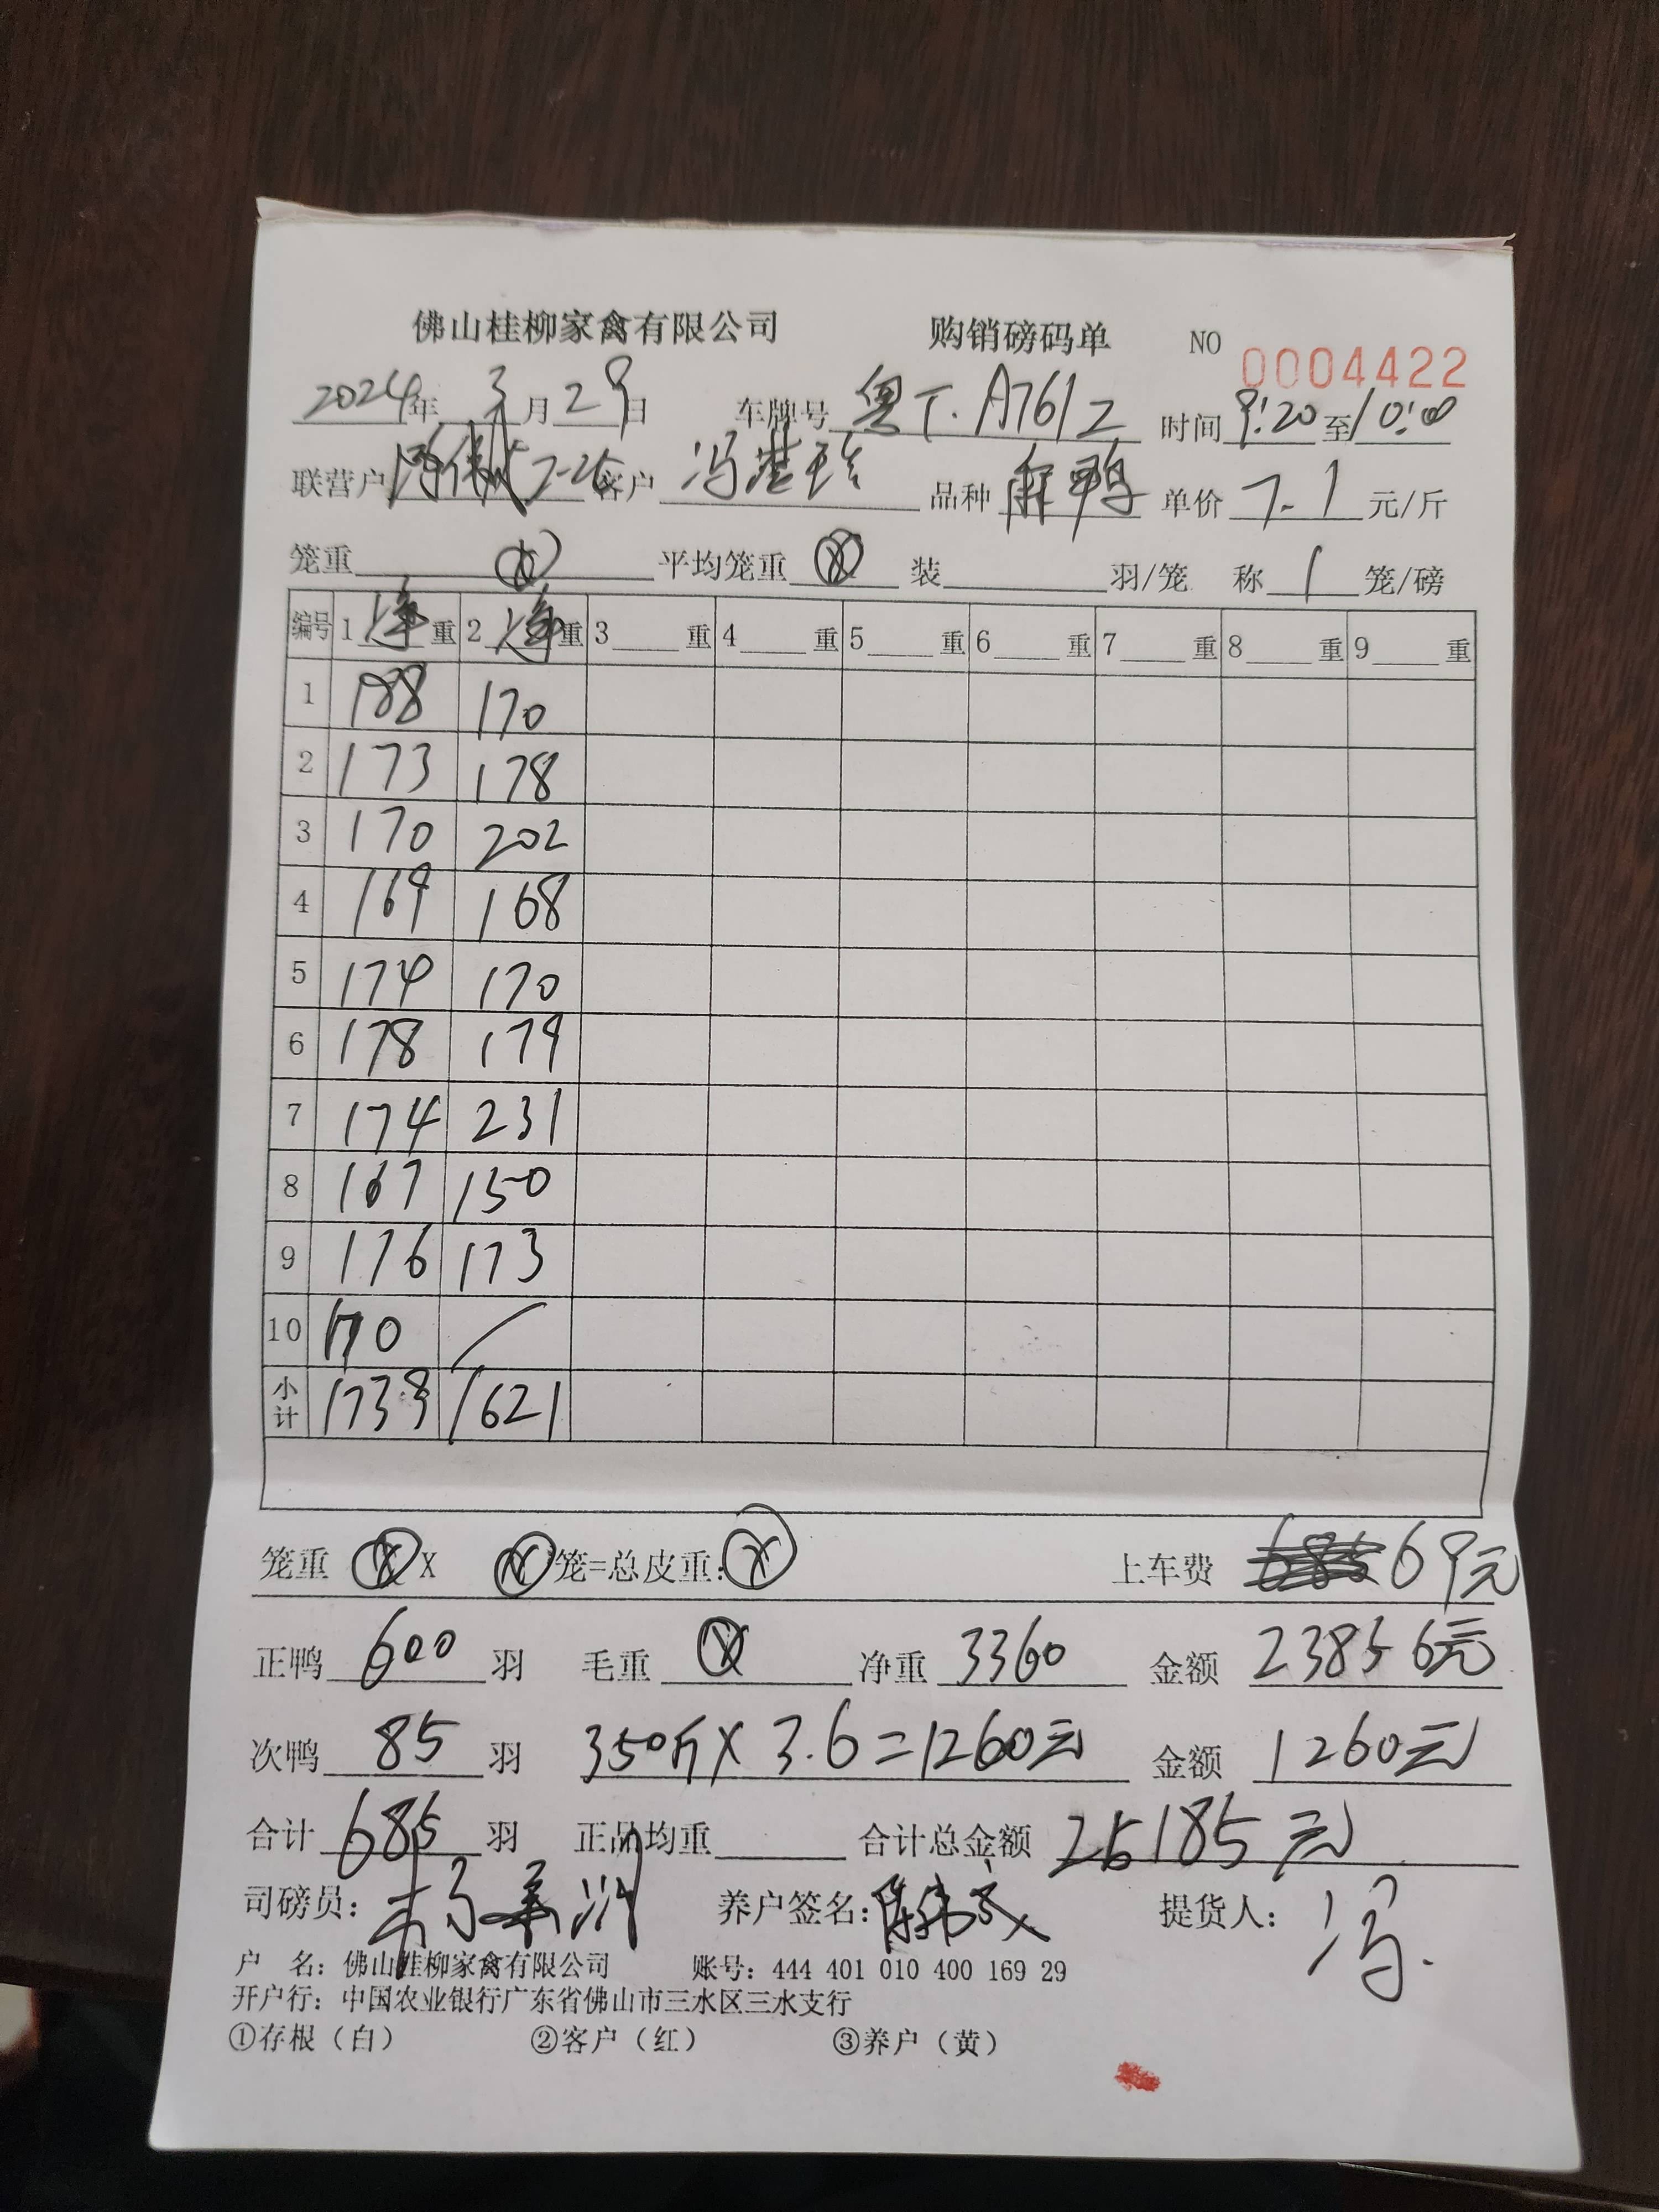 佛山桂柳家禽有限公司 购销磅码单 NO 0004422
2024年 3月29日 车牌号 粤T.A761Z 时间 9:20至10:00
联营户 陈伟成7-25 客户 冯 品种 麻鸭 单价 7.1 元/斤
笼重 ⊗ 平均笼重 ⊗ 装 羽/笼 称 1 笼/磅
编号 1 净 重 2 净 重 3 重 4 重 5 重 6 重 7 重 8 重 9 重
1 188 170
2 173 178
3 170 202
4 169 168
5 174 170
6 178 179
7 174 231
8 167 150
9 176 173
10 170 /
小计 1739 1621
笼重 ⊗ X ⊗ 笼=总皮重: ⊗ 上车费 69元
正鸭 600 羽 毛重 ⊗ 净重 3360 金额 23856元
次鸭 85 羽 350斤×3.6=1260元 金额 1260元
合计 685 羽 正品均重 合计总金额 25185元
司磅员: 养户签名: 陈伟成 提货人: 冯.
户 名: 佛山桂柳家禽有限公司 账号: 444 401 010 400 169 29
开户行: 中国农业银行广东省佛山市三水区三水支行
①存根（白） ②客户（红） ③养户（黄）